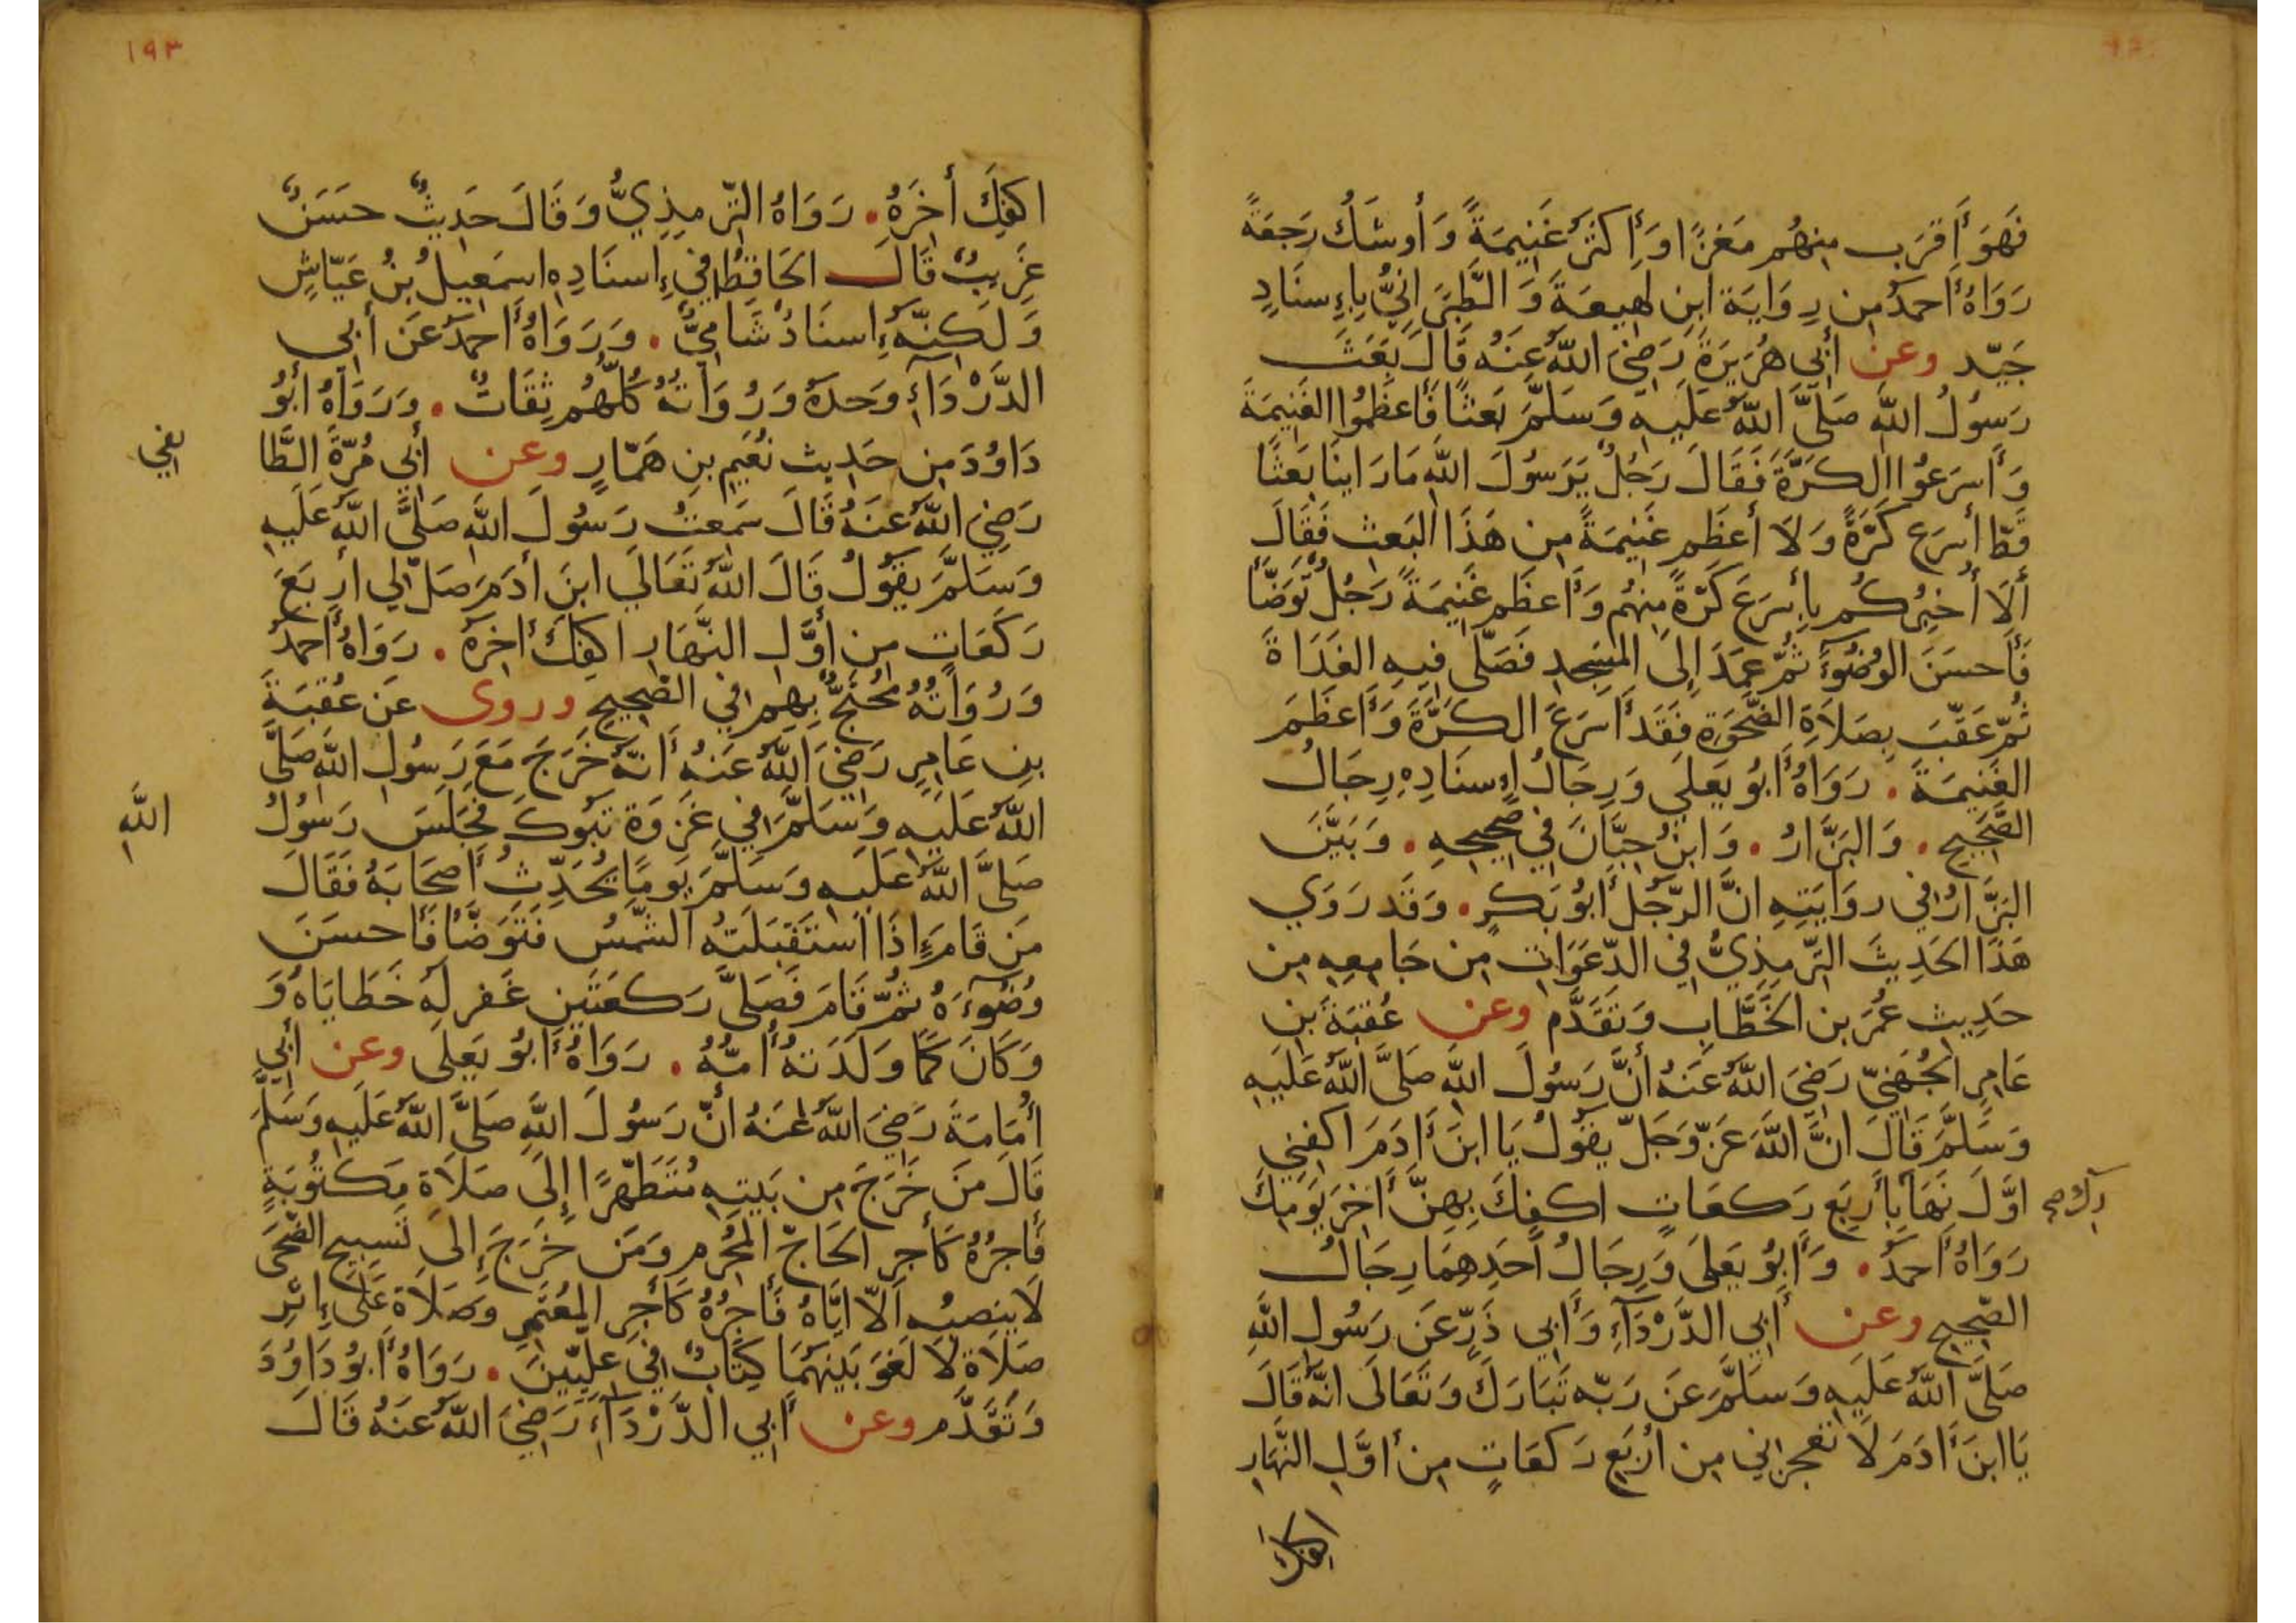 فَهُوَ أَقرَب مِنهُم مَغزًا وَأَكثَرُ غَنِيمَةً وَأَوشَكُ رَجعَةً
رَوَاهُ أَحمَدُ مِن رِوَايَة ابنِ لهِيعَةَ وَالطَّبَرَانِيُّ بِإِسنَادٍ
جَيّد وعن أَبِي هُرَيرَةَ رَضِيَ اللّٰهُ عَنهُ قَالَ بَعَثَ
رَسُولُ اللّٰه صَلَّى اللّٰهُ عَلَيهِ وَسَلَّمَ بَعثًا فَأَعظَمُوا الغَنِيمَةَ
وَأَسرَعُوا الكَرَّةَ فَقَالَ رَجُلٌ يَرَسُولَ اللّٰه مَا رَاينَا بَعثًا
قَطّ أَسرَع كَرَّةً وَلَا أَعظَم غَنِيمَةً مِن هَذَا البَعث فَقَالَ
أَلَا أُخبِرُكُم بِأَسرَعَ كَرَّةً مِنهُم وَأَعظَم غَنِيمَةً رَجُلٌ تَوَضَّأَ
فَأَحسَنَ الوُضُوءَ ثُمّ عمَدَ إِلَى المَسجِدِ فَصَلّى فِيهِ الغَدَاةَ
ثُمّ عَقّبَ بِصَلَاةِ الضَّحوَةِ فَقَد أَسرَعَ الكَرَّةَ وَأَعظَمَ
الغَنِيمَةَ . رَوَاهُ أَبُو يَعلَي وَرِجَالُ إِسنَادِهِ رِجَالُ
الصَّحِيح . وَالبَزَّارُ . وَابنُ حِبَّانَ فِي صَحِيحِهِ . وَبَيَّنَ
البَزَّارُ فِي روَايَتِهِ انَّ الرّجُلَ أَبُو بَكرٍ . وَقَد رَوَي
هَذَا الحَدِيثَ التّرمِذِيُّ فِي الدّعَوَات مِن جَامِعِهِ مِن
حَدِيث عُمَرَ بن الخَطَّابِ وَتَقَدَّم وعن عُقبَةَ بنِ
عَامِرِ الجُهَنِيّ رَضِيَ اللّٰهُ عَنهُ أَنَّ رَسُولَ اللّٰه صَلَّى اللّٰهُ عَلَيهِ
وَسَلَّمَ قَالَ انَّ اللّٰهَ عَزّ وَجَلّ يقُولُ يَا ابنَ أَدَمَ اكفِنِي
اوَّلَ نِهَا بِأَربَع رَكعَاتٍ اكفِكَ بِهِنَّ أَخِرَ يَومِكَ
رَوَاهُ أَحمَدُ . وَأَبُو يَعلَى وَرِجَالُ أَحَدِهِمَا رِجَالُ
الصّحِيح وعن أَبِي الدَّرْدَآءِ وَأَبِي ذَرٍّ عَن رَسُولِ اللّٰهِ
صَلَّى اللّٰهُ عَلَيهِ وَسَلَّمَ عَن رَبّه تَبَارَكَ وَتَعَالَى انَّهُ قَالَ
يَا ابنَ أَدَمَ لَا تعجزنِي مِن أَربَعِ رَكعَاتٍ مِن أَوَّلِ النَّهَارِ
اكفك
١٩٣
اكفِكَ أخِرَهُ . رَوَاهُ التّرمِذِيُّ وَقَالَ حَدِيثٌ حسَنٌ
غَرِيبٌ قَالَ الحَافِظُ فِي إِسنَادِهِ اسمَعِيلُ بنُ عَيّاشٍ
وَلَكِنّهُ إِسنَادٌ شَامِيٌّ . وَرَوَاهُ أَحمَدُ عَن أَبِي
الدَّرْدَآءِ وَحدَهُ وَرُوَاتهُ كُلّهُم ثِقَاتٌ . وَرَوَاهُ أَبُو
دَاوُدَ مِن حَدِيث نُعَيم بنِ هَمّارٍ وعن أَبِي مُرّةَ الطَّا
يفي
رَضِيَ اللّٰهُ عَنهُ قَالَ سَمعتُ رَسُولَ اللّٰه صَلَّى اللّٰهُ عَلَيهِ
وَسَلَّمَ يقُولُ قَالَ اللّٰهُ تَعَالَي ابنَ أَدَمَ صَلّ لِي أَربَعَ
رَكَعَاتٍ مِن أَوَّلِ النَّهَارِ اكفِكَ أَخِرَهُ . رَوَاهُ أَحمَدُ
وَرُوَاتُهُ مُحتَجٌّ بِهِم فِي الصَّحِيح وروى عَن عُقبَةَ
بنِ عَامِرٍ رَضِيَ اللّٰهُ عَنهُ أَنّهُ خَرَجَ مَعَ رَسُولِ اللّٰه صَلَّى
اللّٰهُ عَلَيهِ وَسَلَّمَ فِي غَزوَة تبُوكَ فَجَلَسَ رَسُولُ
اللّٰهِ
صَلَّى اللّٰهُ عَلَيهِ وَسَلَّمَ يَومًا يُحَدِّثُ أَصحَابَهُ فَقَالَ
مَن قَامَ إِذَا استَقبَلَتهُ الشّمسُ فَتَوَضَّأَ فَأَحسَنَ
وُضُوءَهُ ثُمّ قَامَ فَصَلَّى رَكعَتَينِ غَفر لَهُ خَطَايَاهُ وَ
وَكَانَ كَمَا وَلَدَتهُ أُمّهُ . رَوَاهُ أَبُو يَعلَى وعن أَبِي
أُمَامَةَ رَضِيَ اللّٰهُ عَنهُ أَنّ رَسُولَ اللّٰهِ صَلَّى اللّٰهُ عَلَيهِ وَسَلَّمَ
قَالَ مَن خَرَجَ مِن بَيتِهِ مُتَطَهّرًا إِلَى صَلَاةٍ مَكتُوبَةٍ
فَأَجرُهُ كَأَجرِ الحَاجّ المُحرِم وَمَن خَرَجَ إِلى تَسبِيحِ الضّحَى
لَا ينصِبُه اَلّا ايَّاهُ فَأَجرُهُ كَأَجرِ المُعتَمِرِ وَصَلَاة عَلَى إِثرِ
صَلَاة لَا لَغوَ بَينَهُمَا كِتَابٌ فِي علّيّينَ . رَوَاهُ أَبُو دَاوُدَ
وَتَقَدَّم وعن أَبِي الدَّرْدَآءِ رَضِيَ اللّٰهُ عَنهُ قَالَ